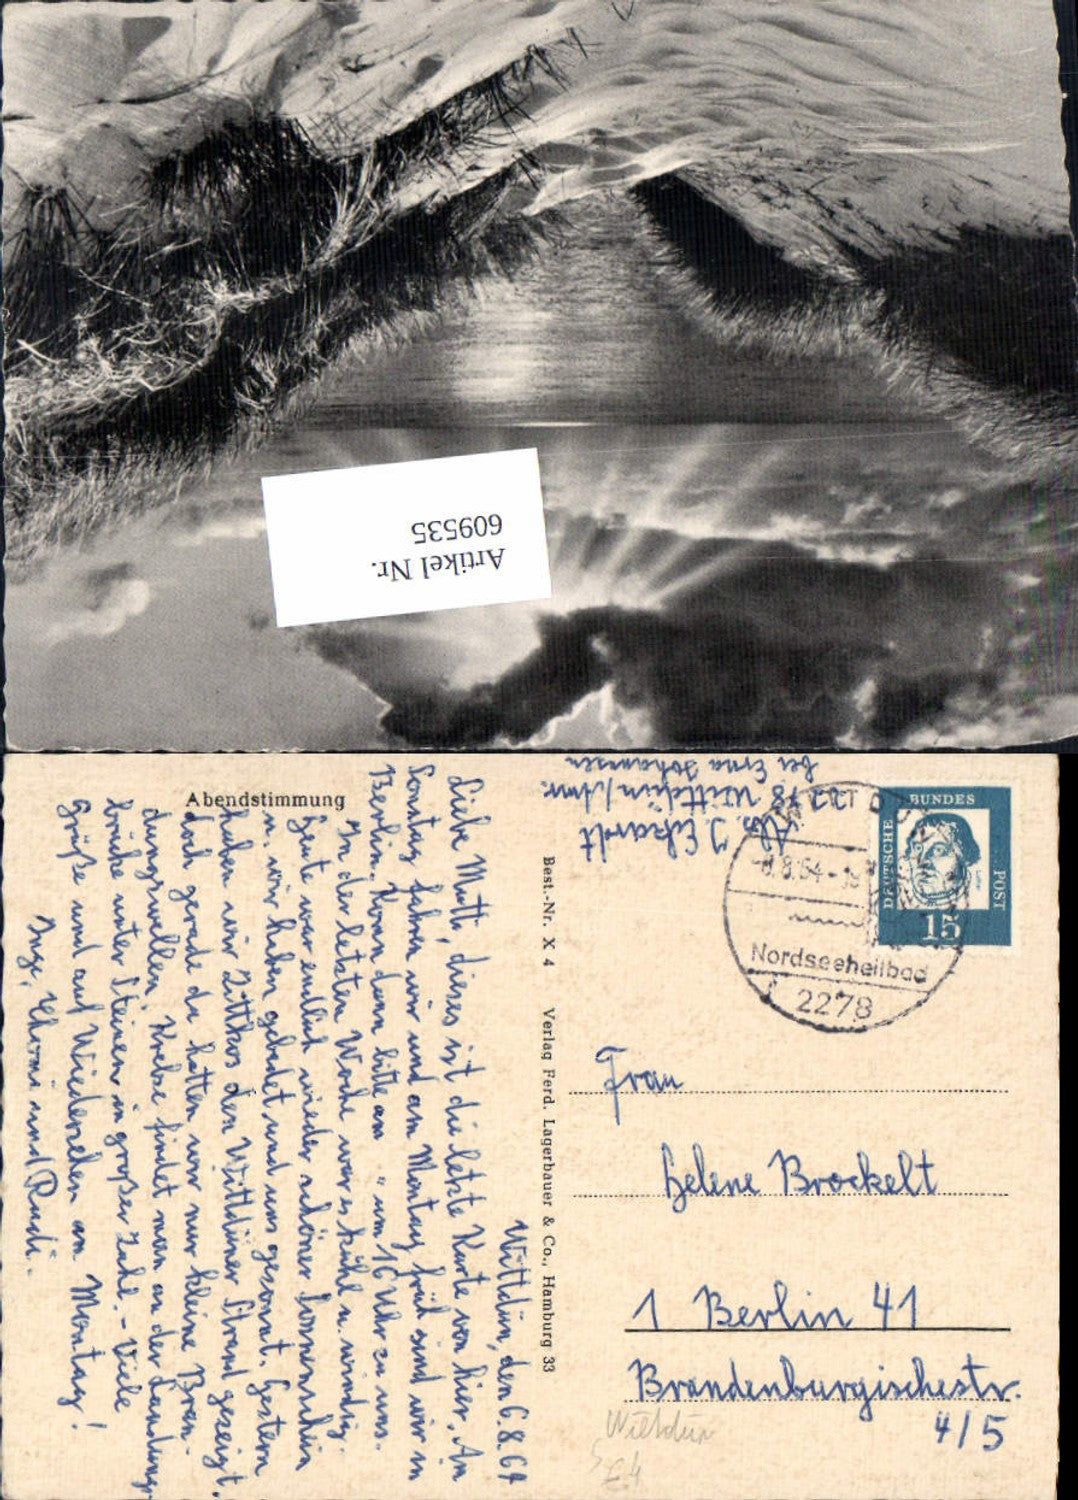 Artikel Nr.
609535
Abendstimmung
Wittdün, den 6.8.64
Liebe Mutti, dieses ist die letzte Karte von hier. Am
Sonntag fahren wir und am Montag früh sind wir in
Berlin. Komm dann bitte am " um 16 Uhr zu uns.
In der letzten Woche war es kühl u. windig.
Heute war endlich wieder schöner Sonnenschein
u. wir haben gebadet und uns gesonnt. Gestern
haben wir Zittkos den Wittdüner Strand gezeigt,
doch gerade da hatten wir nur kleine Bran-
dungswellen. Krebse findet man an der Landungs-
brücke unter Steinen in großer Zahl. - Viele
Grüße und auf Wiedersehen am Montag!
Inge, und Rudi.
Best.-Nr. X 4 Verlag Ferd. Lagerbauer & Co., Hamburg 33
Abs. J. Eckardt
2278 Wittdün/Amr.
bei Erna Johannsen
DEUTSCHE
BUNDES
POST
15
-8.8.64-
Nordseeheilbad
2278
Frau
Helene Brockelt
1 Berlin 41
Brandenburgischestr.
4/5
Wittdün